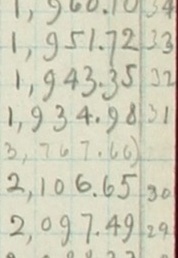 1,960.10 34
1,951.72 33
1,943.35 32
1,934.98 31
3,767.66)
2,106.65 30
2,097.49 29